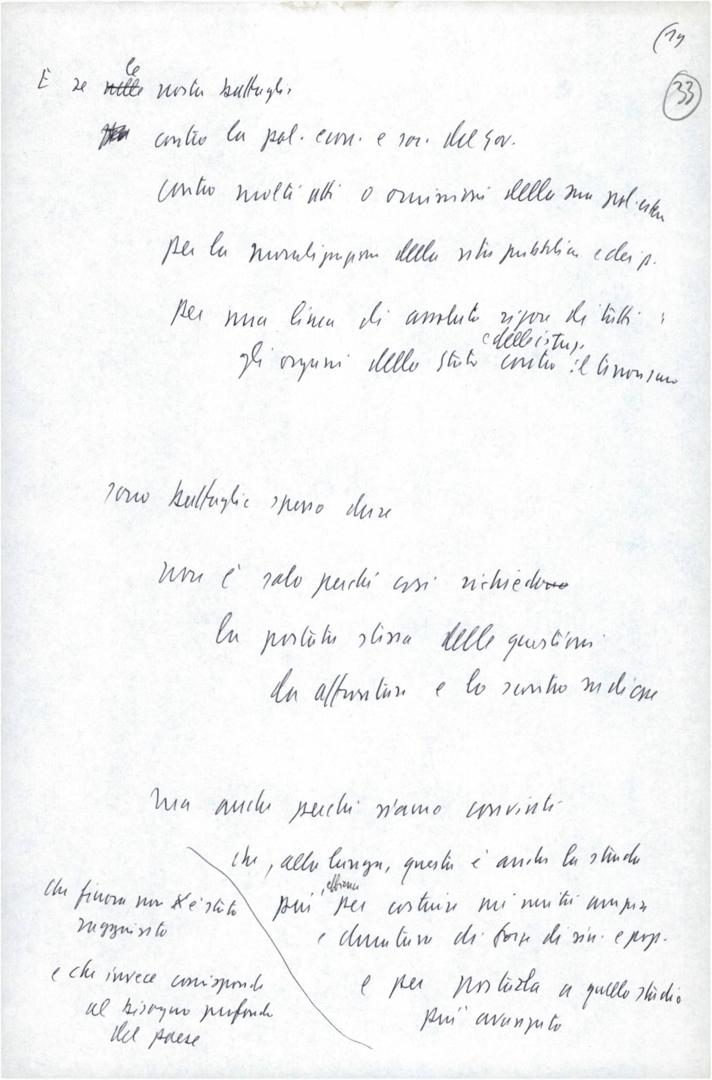 (19
33
E se le nostre battaglie
contro la pol. econ. e soc. del gov.
contro molti atti o omissioni della sua pol. estera
per la moralizzazione della vita pubblica e dei p.
per una linea di assoluto rigore di tutti
e delle istuz.
gli organi dello Stato contro il terrorismo
sono battaglie spesso dure
non è solo perché così richiedono
la portata stessa delle questioni
da affrontare e lo scontro
ma anche perché siamo convinti
che, alla lunga, questa è anche la strada
più efficace per costruire un'unità ampia
e duratura di forze di sin. e pop.
e per portarla a quello stadio
più avanzato
che finora non è stato
raggiunto
e che invece corrisponde
al bisogno profondo
del paese